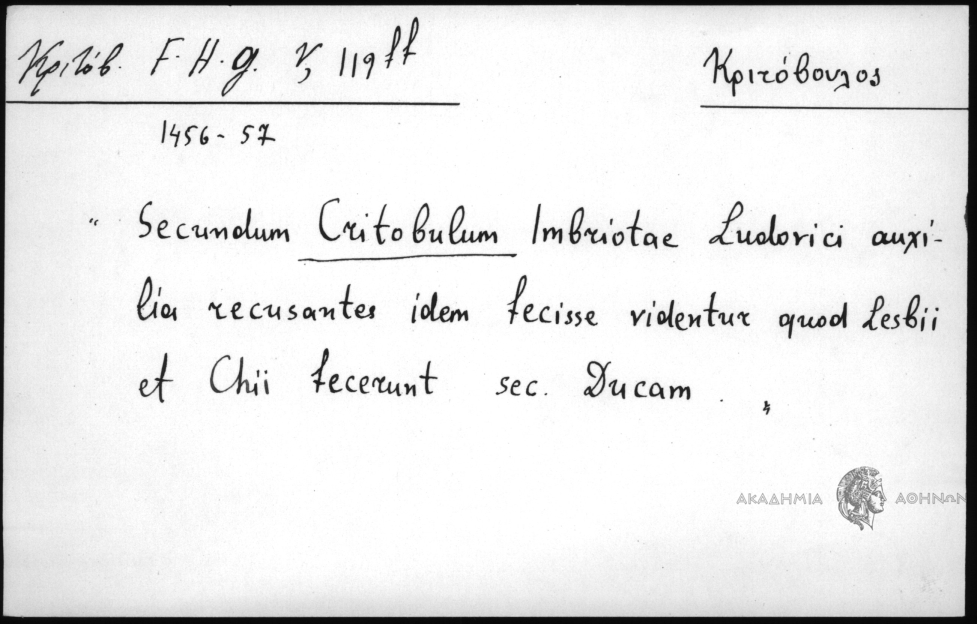 Κριτόβ. F. H. g. V, 119 ff
Κριτόβουλος
1456-57
" Secundum Critobulum Imbriotae Ludovici auxi-
lia recusantes idem fecisse videntur quod Lesbii
et Chii fecerunt sec. Ducam . „
ΑΚΑΔΗΜΙΑ ΑΘΗΝΩΝ